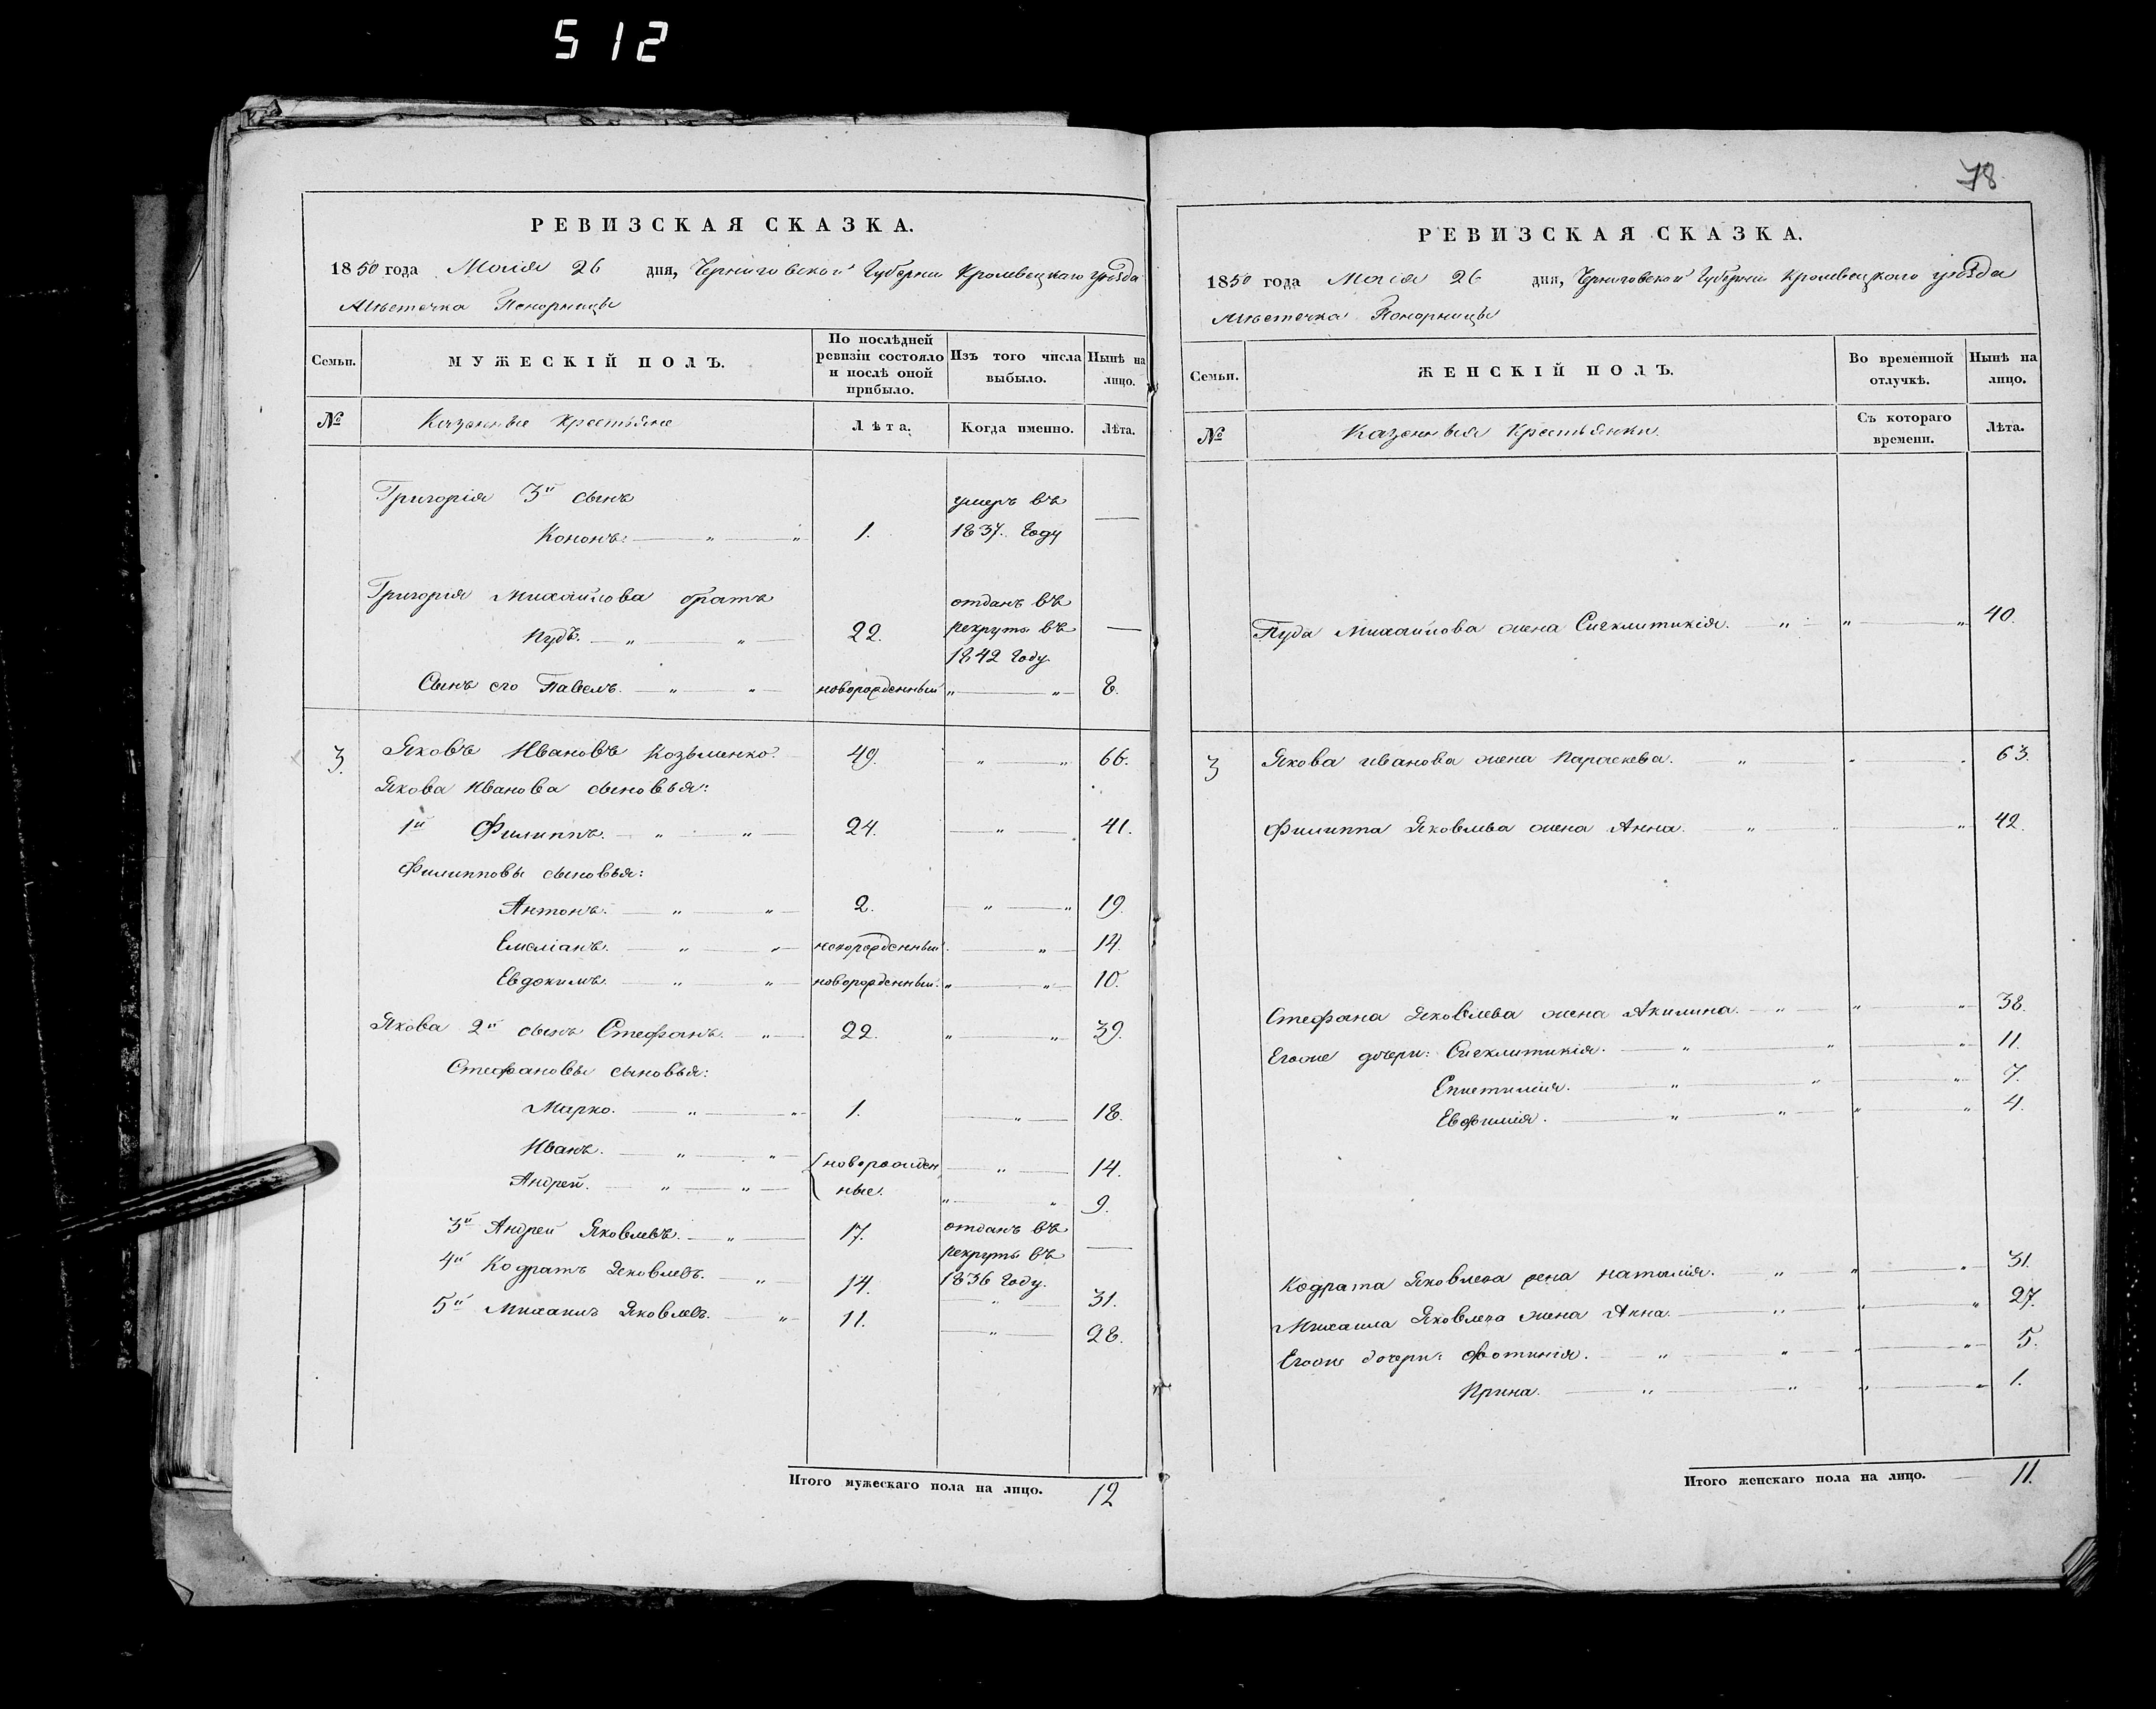 512
РЕВИЗСКАЯ СКАЗКА.
1850 года Маія 26 дня, Черниговской Губерніи Кролевецкаго уѣзда
Мѣстечка Понорницы
Семьи. МУЖЕСКІЙ ПОЛЪ. По послѣдней ревизіи состояло и послѣ оной прибыло. Изъ того числа выбыло. Нынѣ на лицо.
№ Казенные крестьяне Лѣта. Когда именно. Лѣта.
Григорія 3й сынъ умеръ въ
Кононъ. — „ — „ 1. 1837. Году —
Григорія Михайлова братъ отданъ въ
Пудъ. — „ „ — 22. рекруты въ —
1842 Году.
Сынъ его Павелъ. — „ — „ — новорожденный „ — „ 8.
3. Яковъ Ивановъ Козьменко. 49. „ — „ 66.
Якова Иванова сыновья:
1й Филиппъ. — „ — „ — 24. — „ — 41.
Филипповы сыновья:
Антонъ. — „ — „ — 2. — „ — „ 19.
Емеліанъ. — „ — „ — новорожденный. — „ — 14.
Евдокимъ. — „ — „ — новорожденный. „ — „ — 10.
Якова 2й сынъ Стефанъ. — „ — 22. „ — „ 39.
Стефановы сыновья:
Марко. — „ — „ 1. — „ — 18.
Иванъ. — „ — „ { новорожден — „ — 14.
Андрей. — „ — „ — ные. „ — „ 9.
3й Андрей Яковлевъ. — „ — 17. отданъ въ
рекруты въ —
4й Кодратъ Яковлевъ. — „ 14. 1836 Году. 31.
5й Михаилъ Яковлевъ. — „ 11. — „ — 28.
Итого мужескаго пола на лицо. 12
78
РЕВИЗСКАЯ СКАЗКА.
1850 года Маія 26 дня, Черниговской Губерніи Кролевецкаго уѣзда
Мѣстечка Понорницы
Семьи. ЖЕНСКІЙ ПОЛЪ. Во временной отлучкѣ. Нынѣ на лицо.
№ Казенныя Крестьянки. Съ котораго времени. Лѣта.
Пуда Михайлова жена Сигклитикія. — „ — „ — „ 40.
3 Якова Иванова жена Параскева. — „ „ — „ 63.
Филиппа Яковлева жена Анна. „ „ — „ 42.
Стефана Яковлева жена Акилина. — „ — „ — „ 38.
Егоже дочери: Сигклитикія. — „ — „ — „ 11.
Епистимія. — „ — „ — „ 7.
Евфимія. — „ — „ — „ — „ 4.
Кодрата Яковлева жена Наталія. „ — „ — „ 31.
Михаила Яковлева жена Анна. — „ — „ — „ 27.
Егоже дочери: Фотинія. — „ — „ — „ — „ 5.
Ирина. — „ — „ — „ — „ 1.
Итого женскаго пола на лицо. — 11.